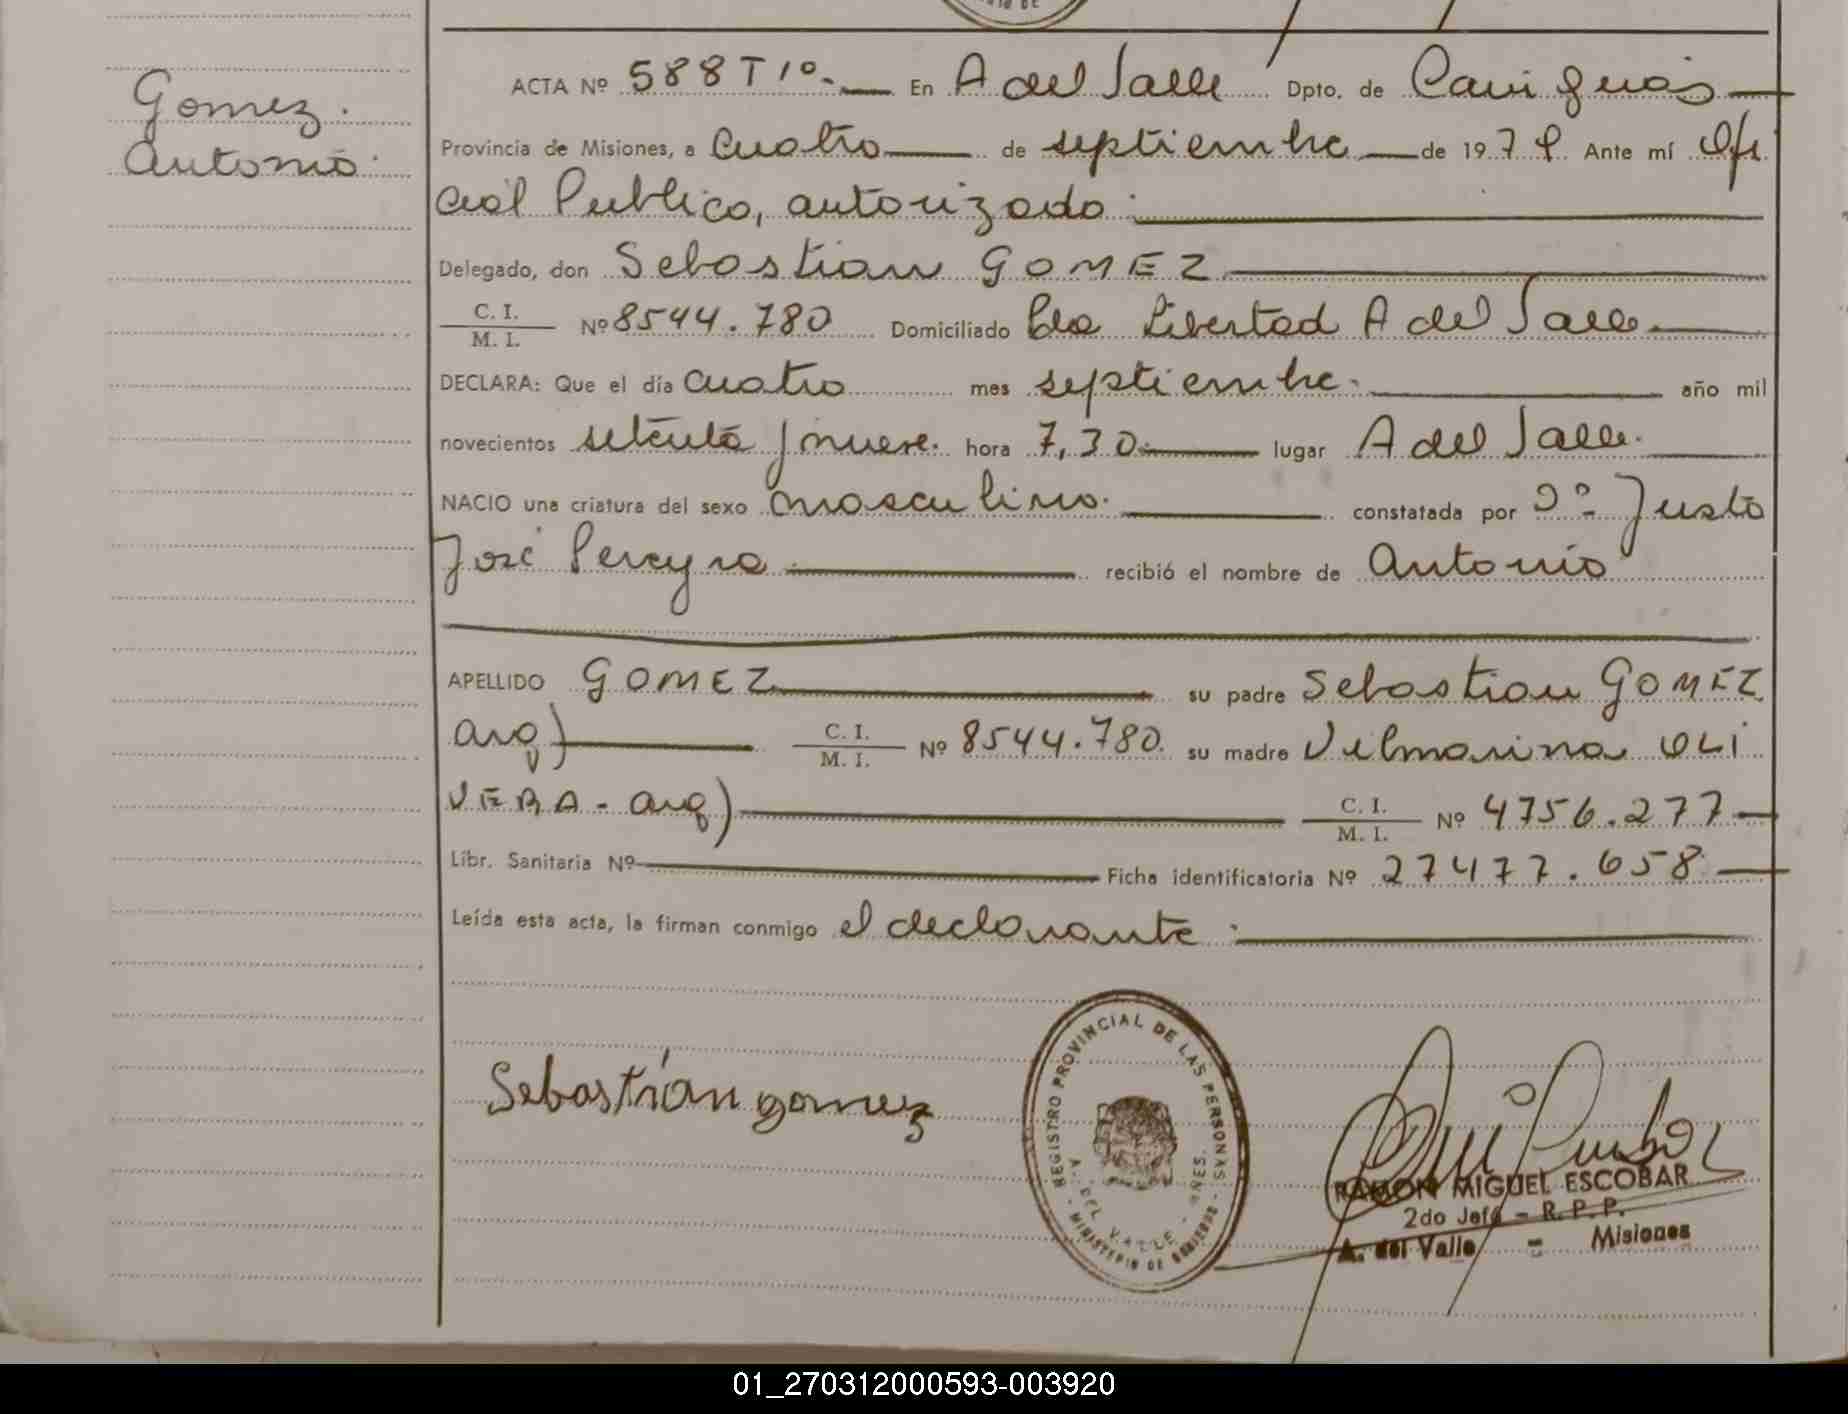 Gomez.
Antonio.
ACTA Nº 588 T 1º. En A del Valle Dpto. de Cainguás
Provincia de Misiones, a cuatro de septiembre de 1979 Ante mí Ofi
cial Publico, autorizado.
Delegado, don Sebastian GOMEZ
C. I.
M. I.
Nº 8544.780 Domiciliado Libertad A del Valle
DECLARA: Que el día cuatro mes septiembre. año mil
novecientos setenta y nueve. hora 7,30 lugar A del Valle.
NACIO una criatura del sexo masculino. constatada por Dº Justo
José Pereyra recibió el nombre de Antonio
APELLIDO GOMEZ su padre Sebastian GOMEZ
arg) C. I.
M. I.
Nº 8544.780. su madre Vilmarina OLI
VERA - arg) C. I.
M. I.
Nº 4756.277
Libr. Sanitaria Nº Ficha identificatoria Nº 27477.658
Leída esta acta, la firman conmigo el declarante.
Sebastián gomez
REGISTRO PROVINCIAL DE LAS PERSONAS
A. DEL VALLE - MNES.
MINISTERIO DE GOBIERNO
RAMON MIGUEL ESCOBAR
2do Jefe - R. P. P.
A. del Valle - Misiones
01_270312000593-003920